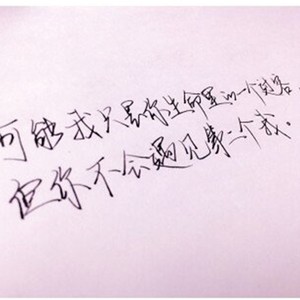 可能我只是你生命里的一个过客，
但你不会遇见第二个我.